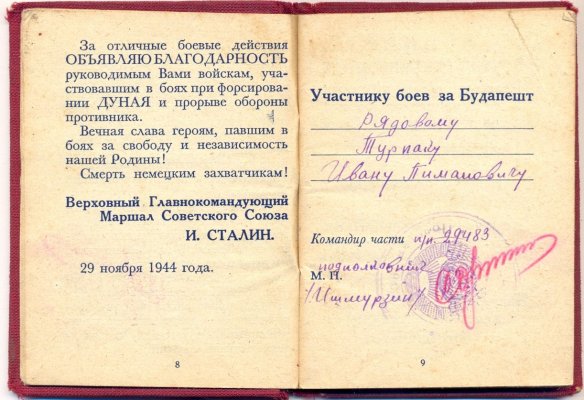 За отличные боевые действия
ОБЪЯВЛЯЮ БЛАГОДАРНОСТЬ
руководимым Вами войскам, уча-
ствовавшим в боях при форсирова-
нии ДУНАЯ и прорыве обороны
противника.
Вечная слава героям, павшим в
боях за свободу и независимость
нашей Родины!
Смерть немецким захватчикам!
Верховный Главнокомандующий
Маршал Советского Союза
И. СТАЛИН.
29 ноября 1944 года.
8
Участнику боев за Будапешт
Рядовому
Турпаку
Ивану Пимановичу
Командир части п/п. 29483
подполковник
М. П.
/Ишмурзин/
9